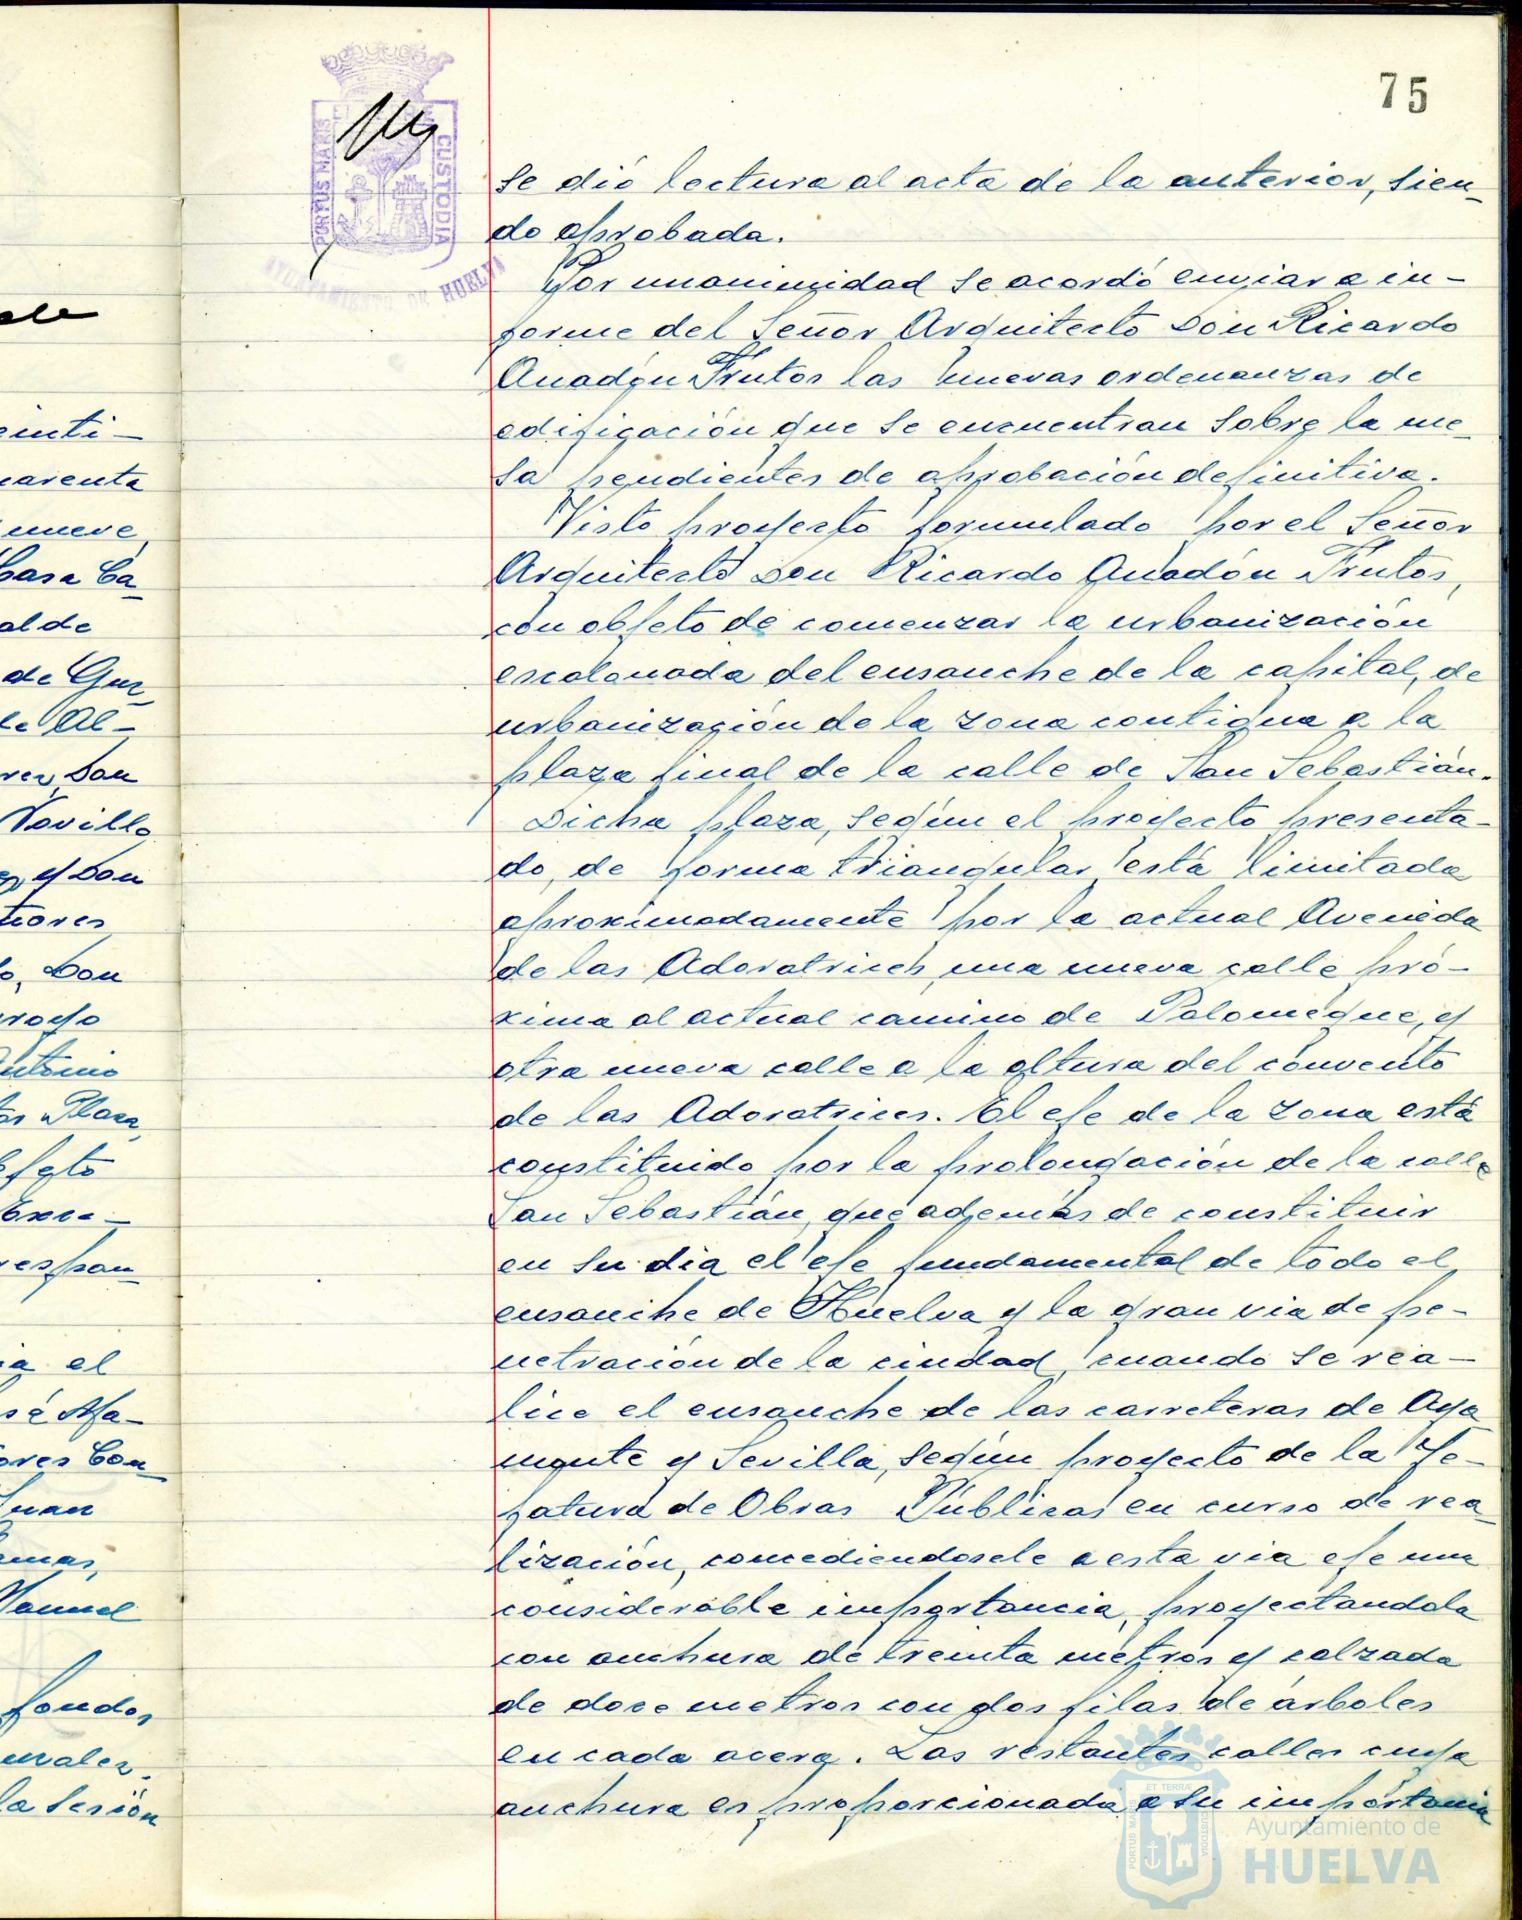 75
PORTUS MARIS
CUSTODIA
AYUNTAMIENTO DE HUELVA
se dió lectura al acta de la anterior, sien-
do aprobada.
Por unanimidad se acordó enviar a in-
forme del Señor Arquitecto Don Ricardo
Anadón Frutos las nuevas ordenanzas de
edificación que se encuentran sobre la me-
sa pendientes de aprobación definitiva.
Visto proyecto formulado por el Señor
Arquitecto Don Ricardo Anadón Frutos,
con objeto de comenzar la urbanización
escalonada del ensanche de la capital, de
urbanización de la zona contigua a la
plaza final de la calle de San Sebastián.
Dicha plaza, según el proyecto presenta-
do, de forma triangular, está limitada
aproximadamente por la actual Avenida
de las Adoratrices, una nueva calle pró-
xima al actual camino de Palomeque, y
otra nueva calle a la altura del convento
de las Adoratrices. El eje de la zona está
constituido por la prolongación de la calle
San Sebastián, que además de constituir
en su dia el eje fundamental de todo el
ensanche de Huelva y la gran via de pe-
netración de la ciudad, cuando se rea-
lice el ensanche de las carreteras de Aya
monte y Sevilla, según proyecto de la Je-
fatura de Obras Públicas en curso de rea-
lización, concediendosele a esta via eje una
considerable importancia, proyectandola
con anchura de treinta metros y calzada
de doce metros con dos filas de árboles
en cada acera. Las restantes calles cuya
anchura es proporcionada a su importancia
einti-
uarenta
nueve
Casa Ca-
alde
de Guz-
de Al-
rez, Don
Novillo
y Don
tiores
Don
royo
Antonio
Plaza,
Exce-
respon-
ia el
sé Ma-
ores Con-
Juan
Manuel
fondos
la sesión
ET TERRA
PORTUS MARIS
CUSTODIA
Ayuntamiento de
HUELVA